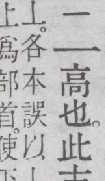 二高也。此
丄。各本誤以
上爲部首。使